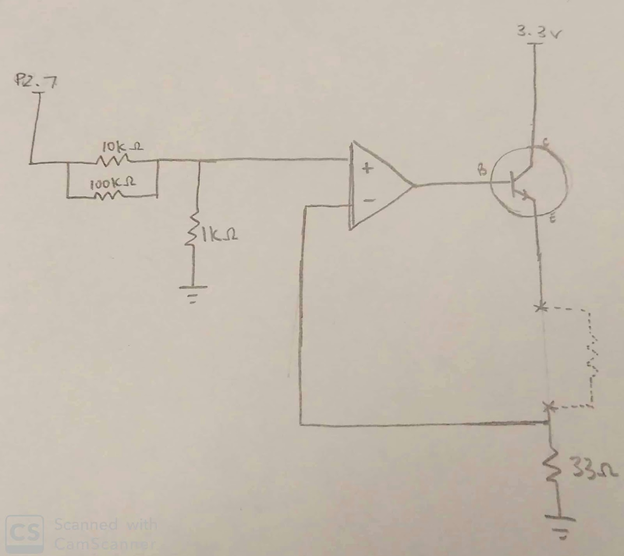 3.3V
P2.7
10kΩ
100kΩ
1kΩ
+
-
B
C
E
33Ω
CS Scanned with
CamScanner